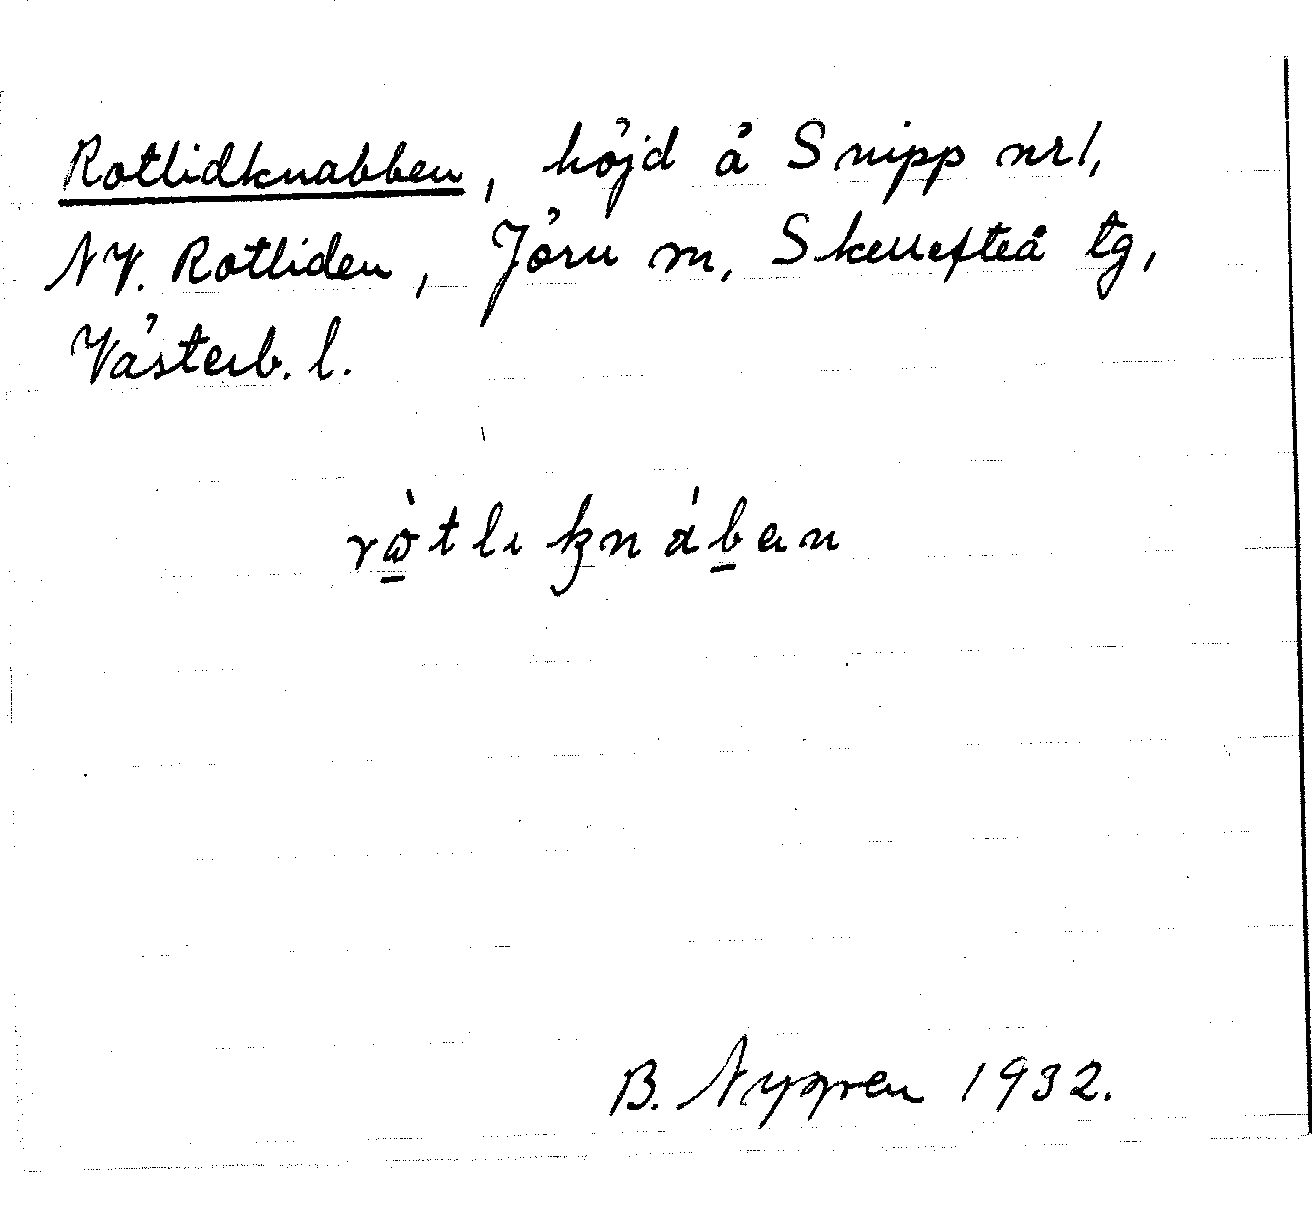 Rotlidknabben, höjd å Snipp nr 1,
NV. Rotliden, Jörn m, Skellefteå tg,
Västerb. l.
rὼ̠tlı kná̠ben
B. Nygren 1932.